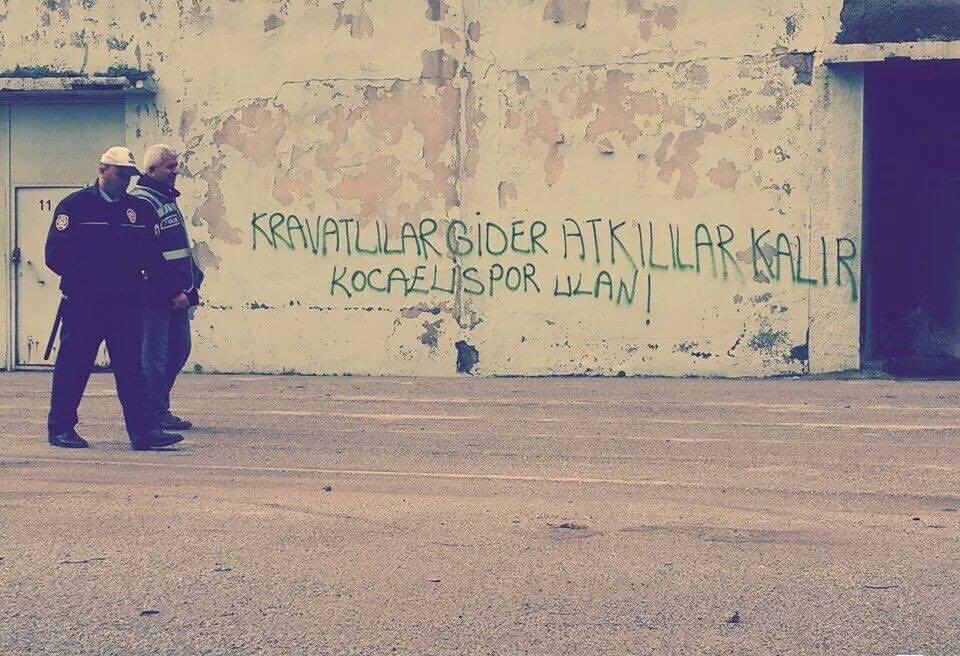 11
KRAVATLILAR GİDER ATKILILAR KALIR
KOCAELİSPOR ULAN!
POLİS